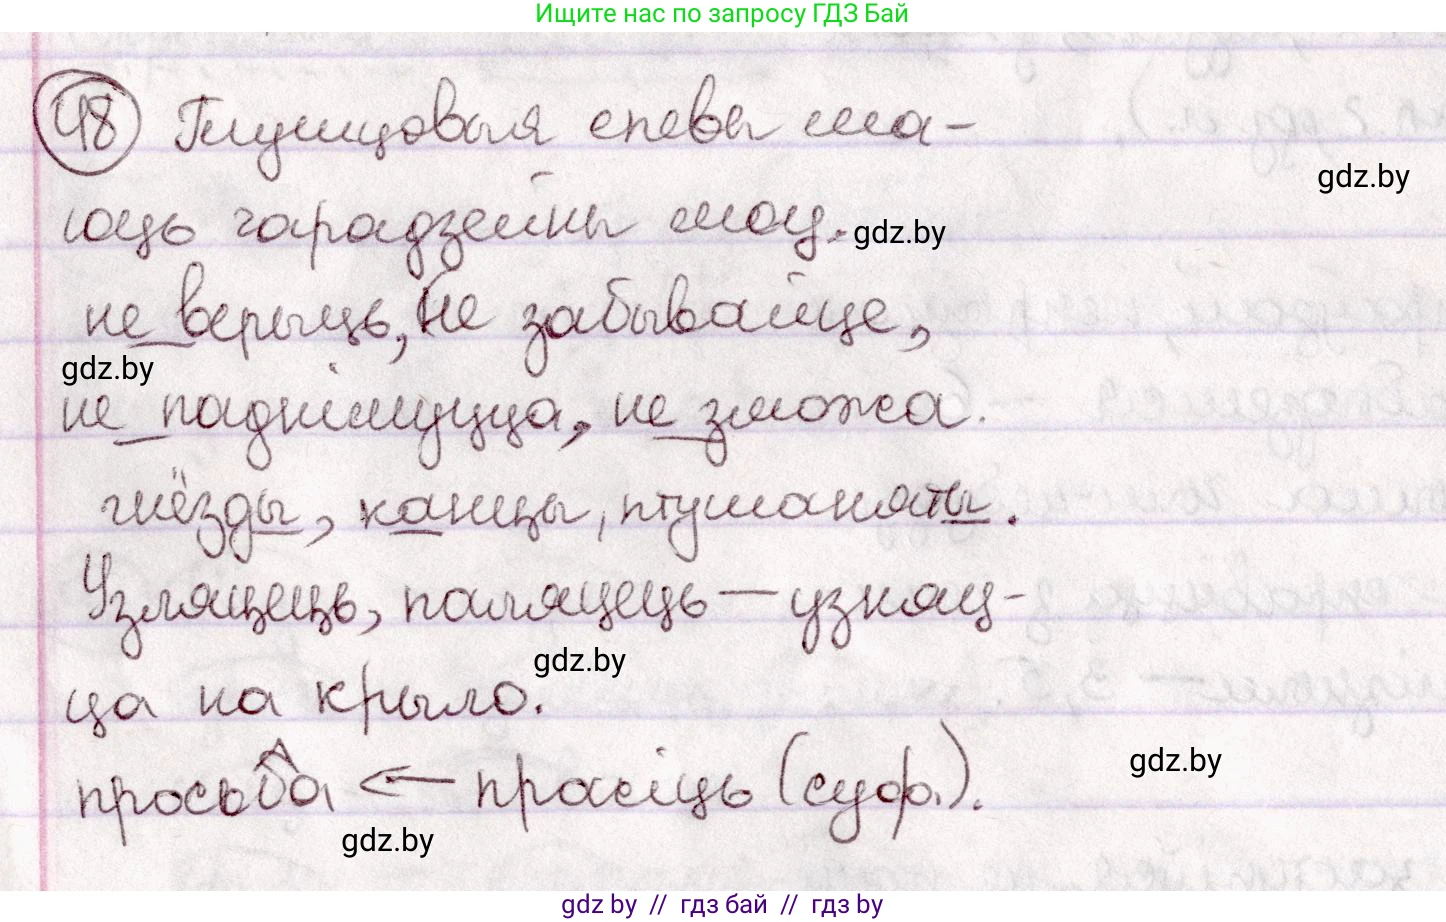 Ищите нас по запросу ГДЗ Бай
48 Глушцовыя спевы ма-
юць чарадзейны моц.
gdz.by
gdz.by
не верыць, не забывайце,
gdz.by
не паднімуцца, не зможа.
гнёзды, канцы, птушаняты.
Узляцець, паляцець — узняц-
gdz.by
ца на крыло.
просьба ← прасіць (суф.).
gdz.by
gdz.by
gdz by // гдз бай // гдз by